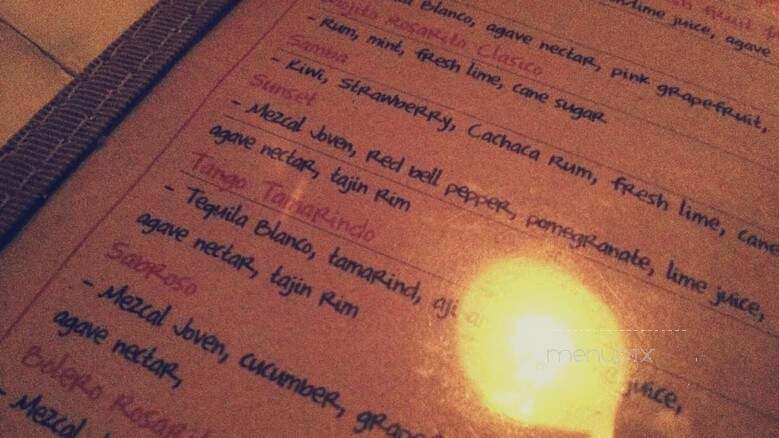 Blanco, agave nectar, pink grapefruit,
lime juice, agave
Mojito Rosarito Clasico
- Rum, mint, fresh lime, cane sugar
Samba
- Kiwi, Strawberry, Cachaca Rum, fresh lime, cane
Sunset
- Mezcal Joven, red bell pepper, pomegranate, lime juice,
agave nectar, tajin Rim
Tango Tamarindo
- Tequila Blanco, tamarind,
juice,
agave nectar, tajin Rim
Sabroso
- Mezcal Joven, cucumber,
juice,
agave nectar,
Bolero Rosarito
- Mezcal
menupix